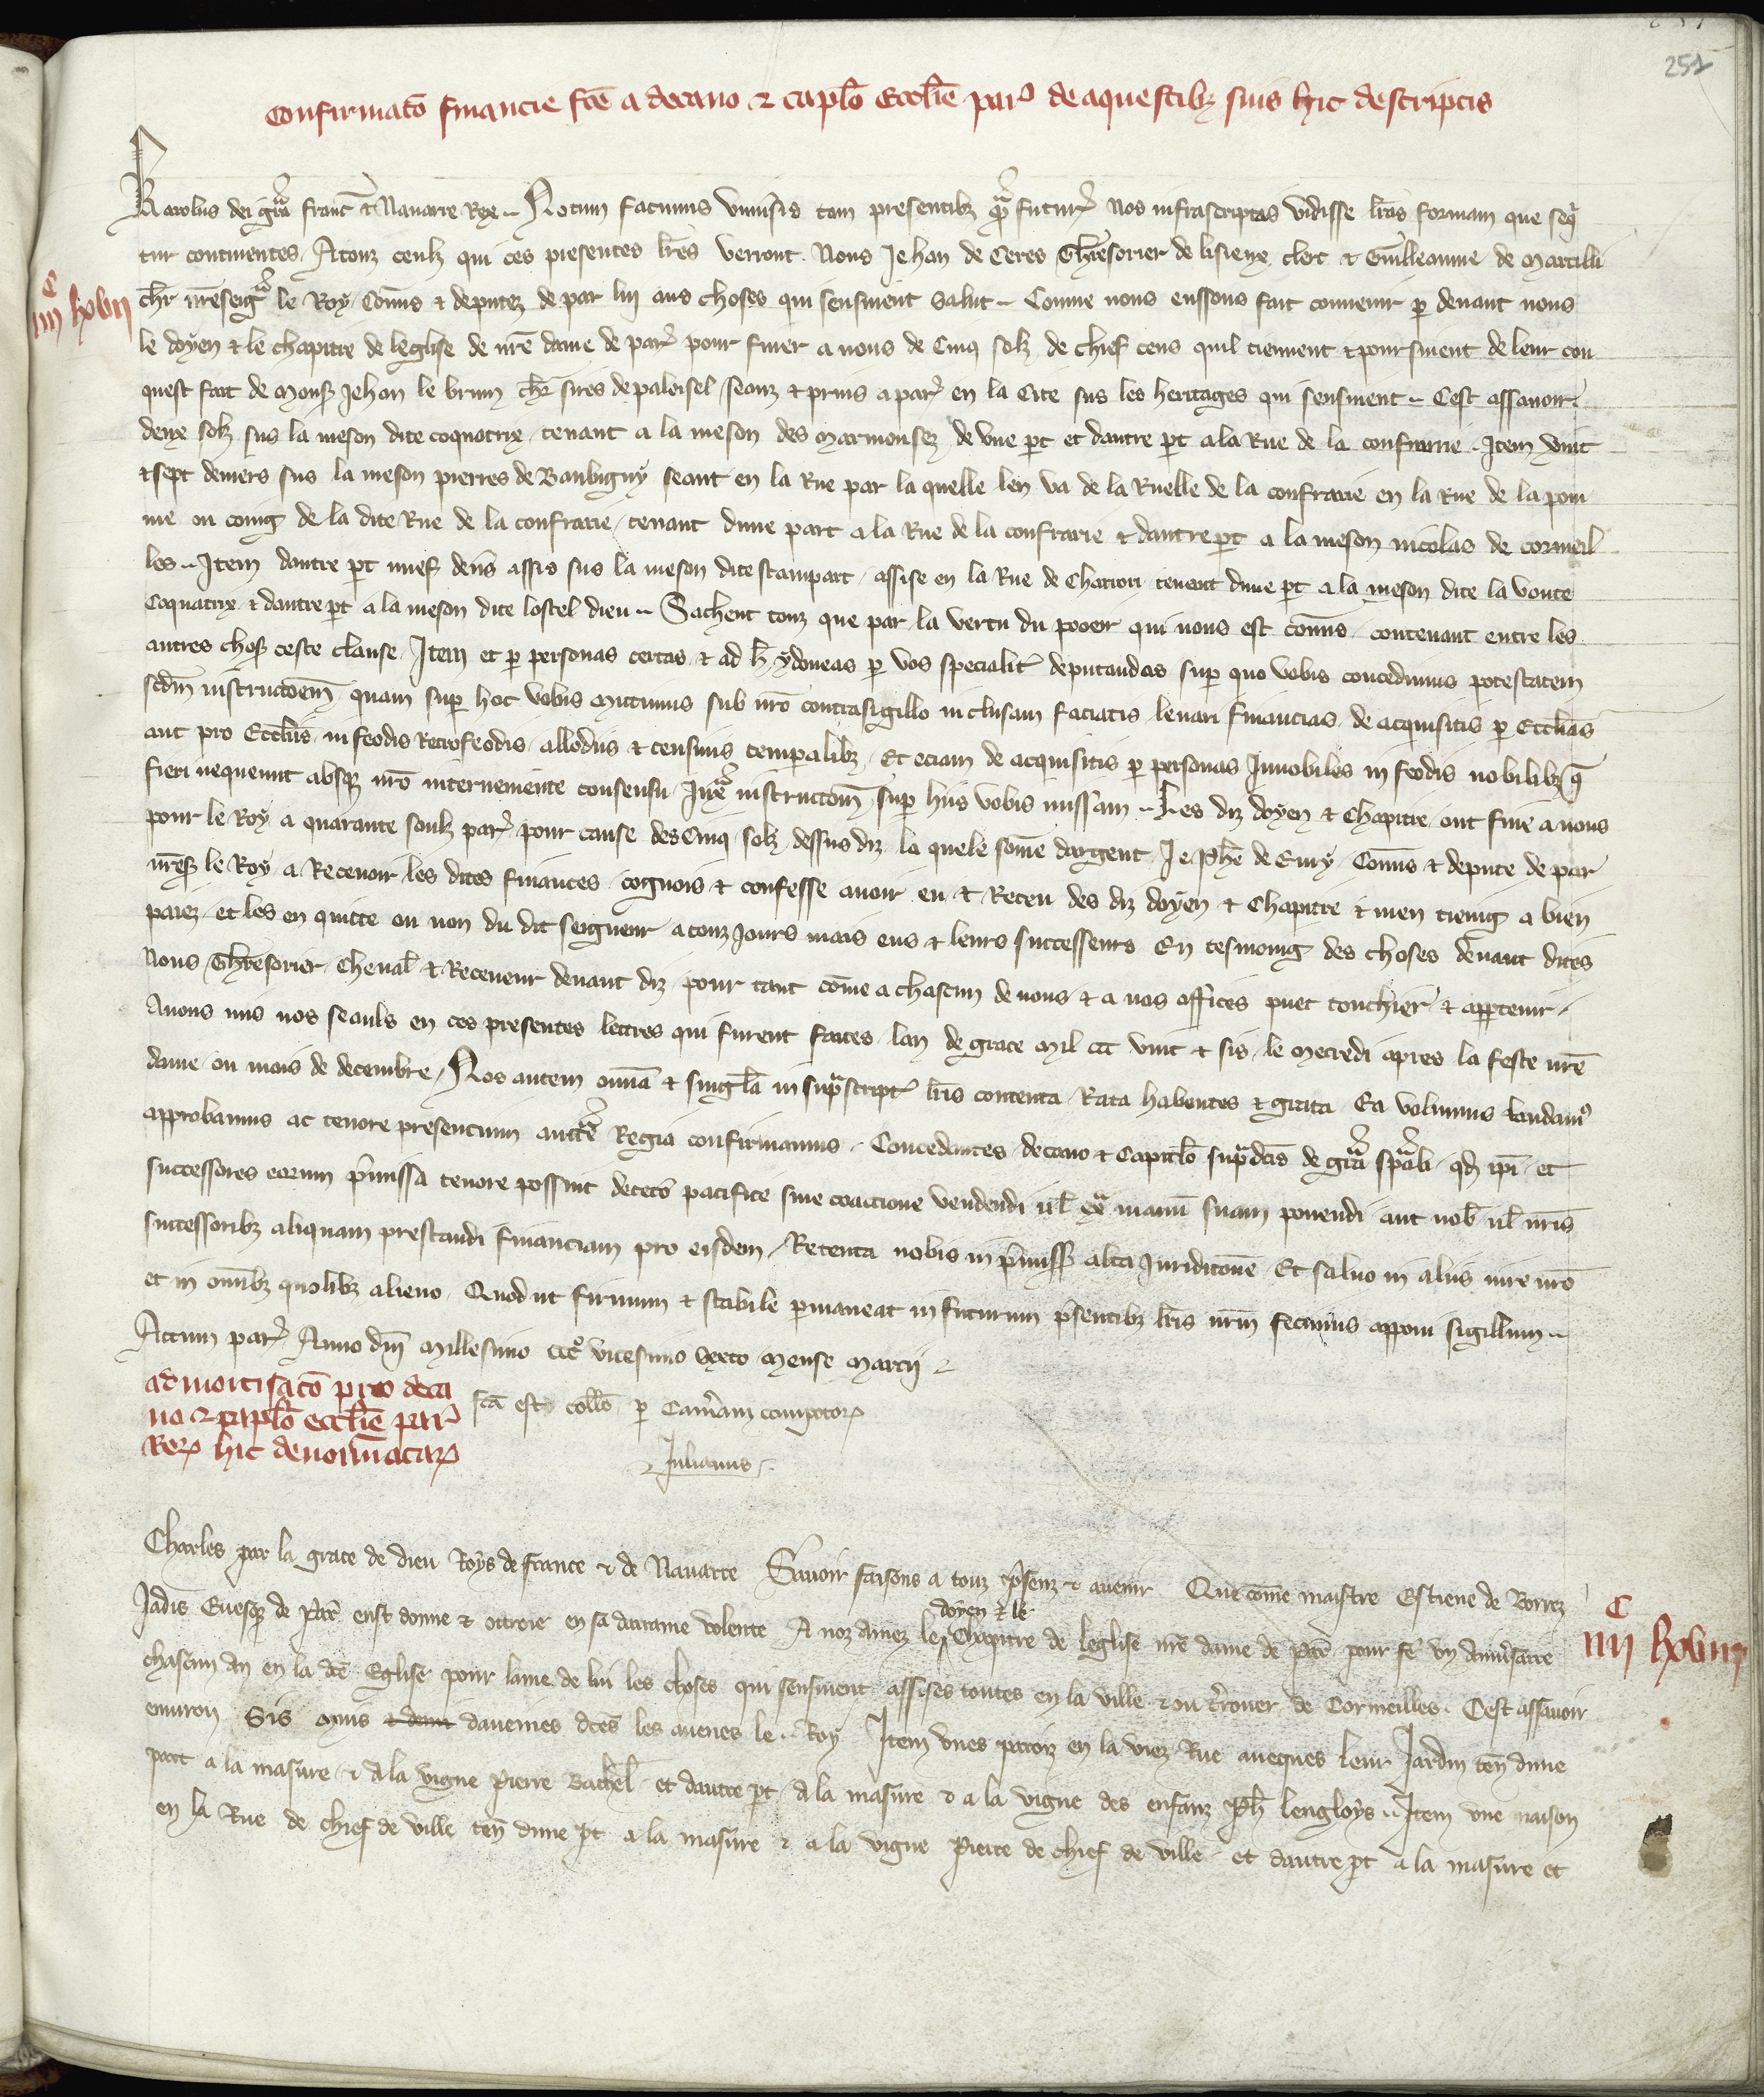 251
Confirmatō financie fcē a decano & capl̄o Eccl̄ie par̛ de aquestibꝫ suis hic descriptis
Karolus dei gr̄a franc̄ & Nauarre Rex .. Notum facimus vniuersis tam presentibꝫ qᵃm futur̛ Nos infrascriptas vidisse l̄ras formam que seqᵃ
tur continentes. A touz ceulz qui ces presentes l̄res verront. Nous Jehan de Ceres Th̄resorier de lisieux clerc & Guilleaume de Marcilli
ch̄r n̄reseigr̄ le Roy Com̄is & deputez de par lui aus choses qui sensiuent Salut .. Comme nous eussons fait conuenir ꝑ deuant nous
C
iiii xxvii
le doyen & le chapitre de leglise de nr̄e dame de par̛ pour finer a nous de Cinq solz de chief cens quil tiennent & poursiuent de leur con
quest fait de Monsꝫ Jehan le brun ch̄r sires de paloisel seanz & pruis a par̛ en la Cite sus les heritages qui sensiuent .. Cest assauoir.
deux solz sus la meson dite coquatrix tenant a la meson des Marmousez de vne ꝑt et dautre ꝑt a la Rue de la confrarie .. Item vint
& sept deniers sus la meson pierres de Baubigny seant en la Rue par la quelle len va de la Ruelle de la confrarie en la Rue de la pom
me ou coing de la dite Rue de la confrarie, tenant dune part a la Rue de la confrarie & dautre ꝑt a la meson nicolas de cormeil
les .. Item dautre ꝑt nuef den̄s assis sus la meson dite stampart, assise en la Rue de Charrori tenant dune ꝑt a la meson dite la voute
Coquatrix & dautre ꝑt a la meson dite lostel dieu .. Sachent touz que par la vertu du pooer qui nous est com̄is contenant entre les
autres chosꝫ ceste clause. Item et ꝑ personas certas & ad h̄ ydoneas ꝑ vos specialit̛ deputandas suꝑ quo vobis concedimus potestatem
scd̄m instructōem quam suꝑ hoc vobis mittimus sub nr̄o contrasigillo inclusam faciatis leuari financias de acquisitis ꝑ Eccl̄ias
aut pro Eccl̄iis in feodis Retrofeodis allodiis & censiuis temꝑalibꝫ Et eciam de acquisitis ꝑ personas Innobiles in feodis nobilibꝫ q̄
fieri nequeunt absqꝫ nr̄o interueniente consensu Juxᵃ instructōem suꝑ hiis vobis missam .. Les diz doyen & Chapitre ont fine a nous
pour le Roy a quarante soulz par̛ pour cause des Cinq solz dessus diz. la quele som̄e dargent Je Ph̄e de Euty Com̄is & depute de par
nr̄esꝫ le Roy a Receuoir les dites finances cognois & confesse auoir eu & Receu des diz doyen & Chapitre & men tieng a bien
paiez et les en quitte ou non du dit seigneur a touz Jours mais eus & leurs successeurs En tesmoing des choses deuant dites
Nous Th̄resorier Cheual̄ & Receueur deuant diz pour tant com̄e a chascun de nous & a nos offices puet touchier & appꝑtenir.
Auons mis nos seauls en ces presentes lettres qui furent faites lan de grace mil ccc vint & sis, le Mecredi apres la feste nr̄e
dame ou mois de decembre. Nos autem om̄ia & singl̄a in supᵃscript̛ l̄ris contenta Rata habentes & grata Ea volumus laudamꝰ
approbamus ac tenore presentium auctᵗᵉ Regia confirmamus. Concedentes decano & Capitl̄o supᵃdc̄is de gr̄a spāli qd̛ ip̄i et
successores eorum p̄missa tenore possint decetơ pacifice sine coactione vendendi ul̄ exᵃ manū suam ponendi aut nob̛ ul̄ nr̄is
successoribꝫ aliquam prestandi financiam pro eisdem. Retenta nobis in p̄missꝫ alta Jurisditōne Et saluo in aliis iure nr̄o
et in om̄ibꝫ quolibꝫ alieno. Quod ut firmum & stabile ꝑmaneat in futurum p̄sentibꝫ l̄ris nr̄m fecimus apponi sigillum ..
Actum par̛ Anno dn̄i Millesimo cccᵒ vicesimo sexto Mense Marcij
admortisatō pro deca
no & capl̄o eccl̄ie par̛
Reꝝ hic denoīatarꝝ
fc̄a est coll̄o ꝑ Cam̄am compotorꝝ
Julianus.
Charles par la grace de dieu Roys de france & de Nauarre Sauoir faisons a touz p̄senz & auenir Que com̄e maistre Estiene de Borrez
Jadis Euesqꝫ de Par̄ eust donne & ottroie en sa darraine volente A noz amez le doyen & le Chapitre de leglise nr̄e dame de Par̄ pour fē vn anniưsaire
C
iiii xxviii
chascun an en la dc̄e Eglise pour lame de lui les choses qui sensiuent assises toutes en la ville & ou t̛rouer de Cormeilles. Cest assauoir
enuiron Sis muis & demi daueines dc̄es les auenes le .. Roy Item vnes ptaiz en la viez Rue auecques leur Jardin ten̄ dune
part a la masure & a la vigne Pierre Bachel̄ et dautre ꝑt a la masure & a la vigne des enfanz Ph̄ lengloys .. Item vne maison
en la Rue de chief de ville ten̄ dune ꝑt a la masure & a la vigne Pierre de chief de ville et dautre ꝑt a la masure et